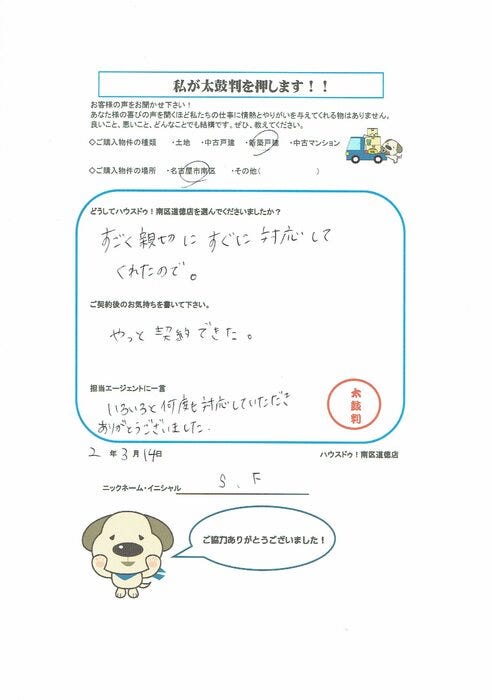 私が太鼓判を押します！！
お客様の声をお聞かせ下さい！
あなた様の喜びの声を聞くほど私たちの仕事に情熱とやりがいを与えてくれる物はありません。
良いこと、悪いこと、どんなことでも結構です。ぜひ、教えてください。
◇ご購入物件の種類 ・土地 ・中古戸建 ・新築戸建 ・中古マンション
◇ご購入物件の場所 ・名古屋市南区 ・その他( )
どうしてハウスドゥ！南区道徳店を選んでくださいましたか？
すごく親切にすぐに対応して
くれたので。
ご契約後のお気持ちを書いて下さい。
やっと契約できた。
担当エージェントに一言
いろいろと何度も対応していただき
ありがとうございました.
太鼓判
2 年 3 月 14日
ハウスドゥ！南区道徳店
ニックネーム・イニシャル S、F
ご協力ありがとうございました！